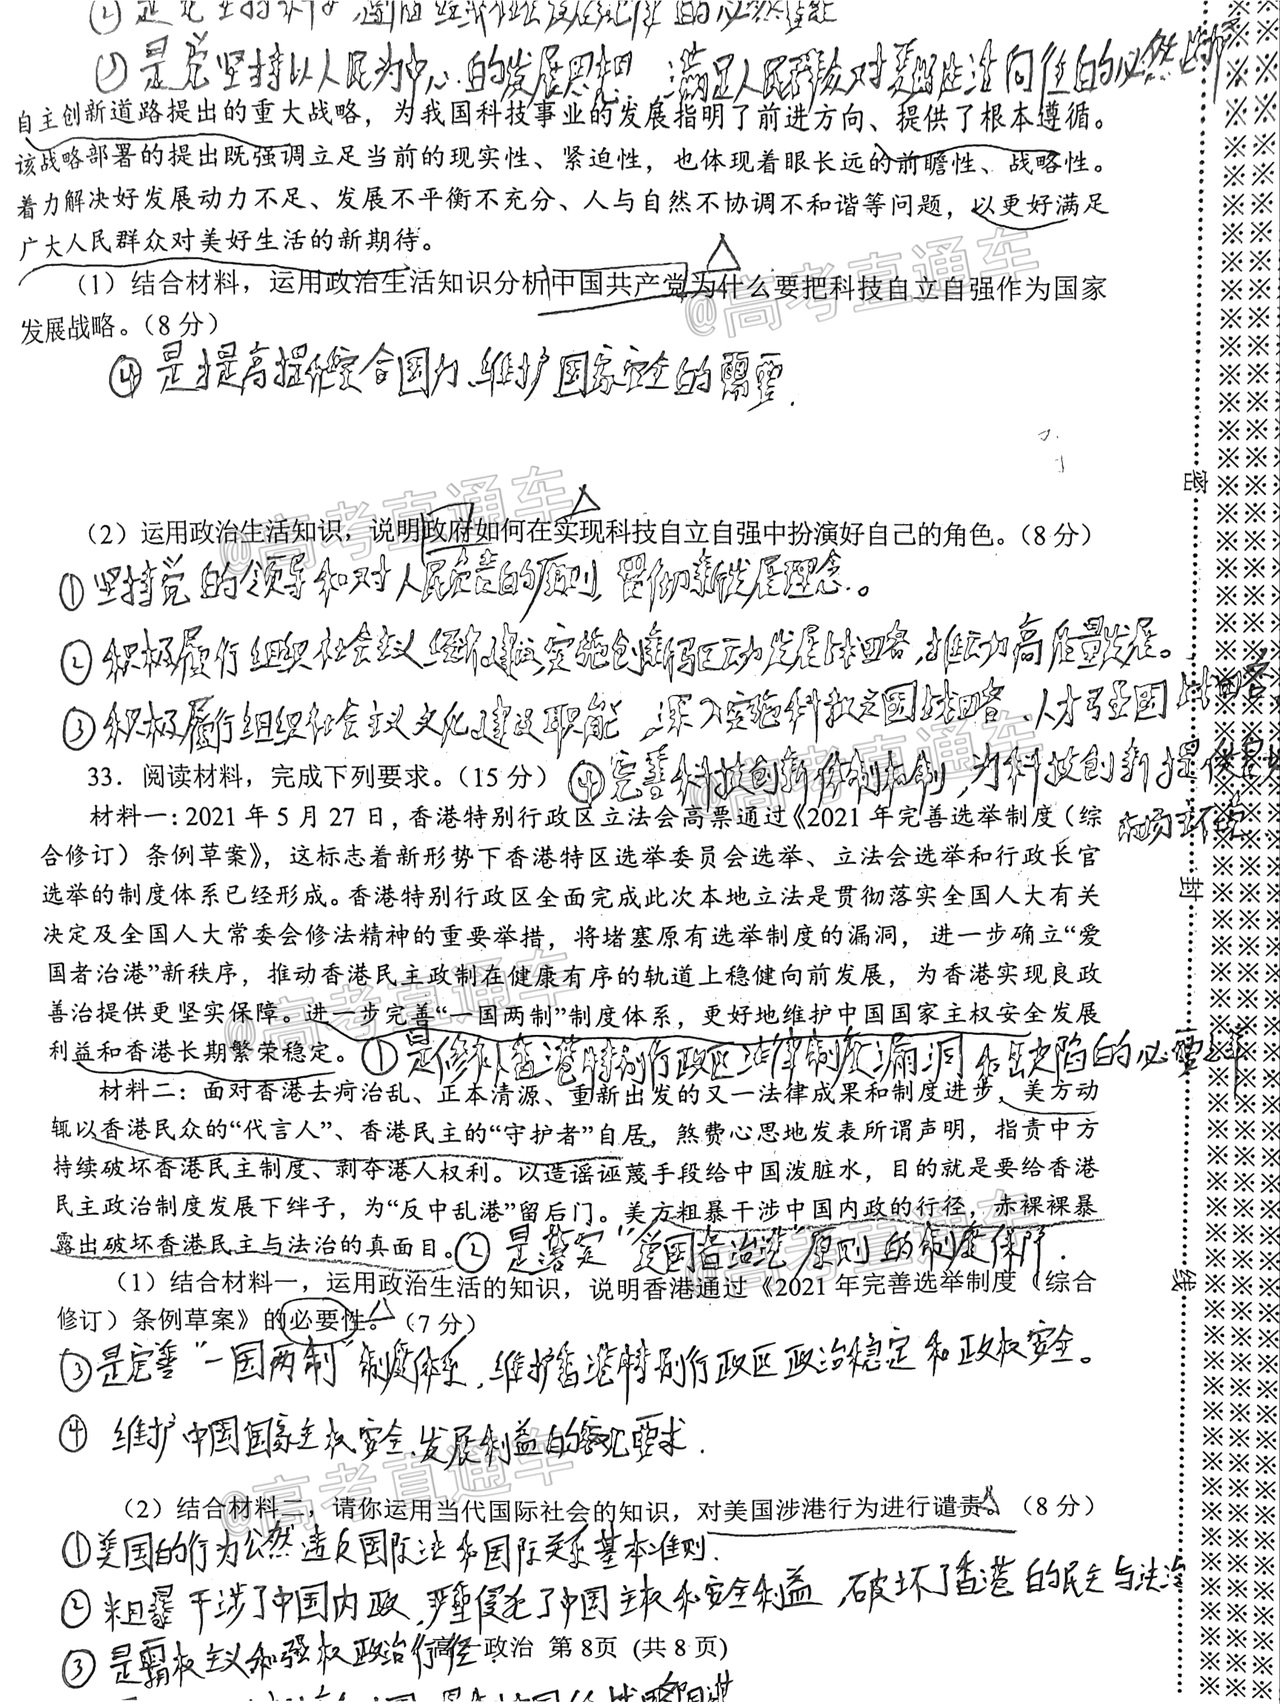 ② 是党坚持以人民为中心的发展思想，满足人民群众对美好生活向往的必然选择
自主创新道路提出的重大战略，为我国科技事业的发展指明了前进方向、提供了根本遵循。
该战略部署的提出既强调立足当前的现实性、紧迫性，也体现着眼长远的前瞻性、战略性。
着力解决好发展动力不足、发展不平衡不充分、人与自然不协调不和谐等问题，以更好满足
广大人民群众对美好生活的新期待。
（1）结合材料，运用政治生活知识分析中国共产党为什么要把科技自立自强作为国家
发展战略。（8 分）
④ 是提高综合国力、维护国家安全的需要.
（2）运用政治生活知识，说明政府如何在实现科技自立自强中扮演好自己的角色。（8 分）
① 坚持党的领导和对人民负责的原则，贯彻新发展理念。
② 积极履行组织社会主义经济建设，实施创新驱动发展战略，推动高质量发展。
③ 积极履行组织社会主义文化建设职能，深入实施科教兴国战略、人才强国战略
33．阅读材料，完成下列要求。（15 分）
④ 完善科技创新体制机制，为科技创新提供良好
市场环境
材料一：2021 年 5 月 27 日，香港特别行政区立法会高票通过《2021 年完善选举制度（综
合修订）条例草案》，这标志着新形势下香港特区选举委员会选举、立法会选举和行政长官
选举的制度体系已经形成。香港特别行政区全面完成此次本地立法是贯彻落实全国人大有关
决定及全国人大常委会修法精神的重要举措，将堵塞原有选举制度的漏洞，进一步确立“爱
国者治港”新秩序，推动香港民主政制在健康有序的轨道上稳健向前发展，为香港实现良政
善治提供更坚实保障。进一步完善“一国两制”制度体系，更好地维护中国国家主权安全发展
利益和香港长期繁荣稳定。
① 是修补香港特别行政区法律制度漏洞和缺陷的必要之举
材料二：面对香港去疴治乱、正本清源、重新出发的又一法律成果和制度进步，美方动
辄以香港民众的“代言人”、香港民主的“守护者”自居，煞费心思地发表所谓声明，指责中方
持续破坏香港民主制度、剥夺港人权利。以造谣诬蔑手段给中国泼脏水，目的就是要给香港
民主政治制度发展下绊子，为“反中乱港”留后门。美方粗暴干涉中国内政的行径，赤裸裸暴
露出破坏香港民主与法治的真面目。
② 是落定“爱国者治港”原则的制度保障.
（1）结合材料一，运用政治生活的知识，说明香港通过《2021 年完善选举制度（综合
修订）条例草案》的必要性。（7 分）
③ 是完善“一国两制”制度体系，维护香港特别行政区政治稳定和政权安全。
④ 维护中国国家主权、安全、发展利益的客观要求.
（2）结合材料二，请你运用当代国际社会的知识，对美国涉港行为进行谴责。（8 分）
① 美国的行为公然违反国际法和国际关系基本准则.
② 粗暴干涉了中国内政，严重侵犯了中国主权和安全利益，破坏了香港的民主与法治
③ 是霸权主义和强权政治行径.
高一政治 第 8页 (共 8 页)
密
封
线
@高考直通车
@高考直通车
@高考直通车
@高考直通车
@高考直通车
@高考直通车
@高考直通车